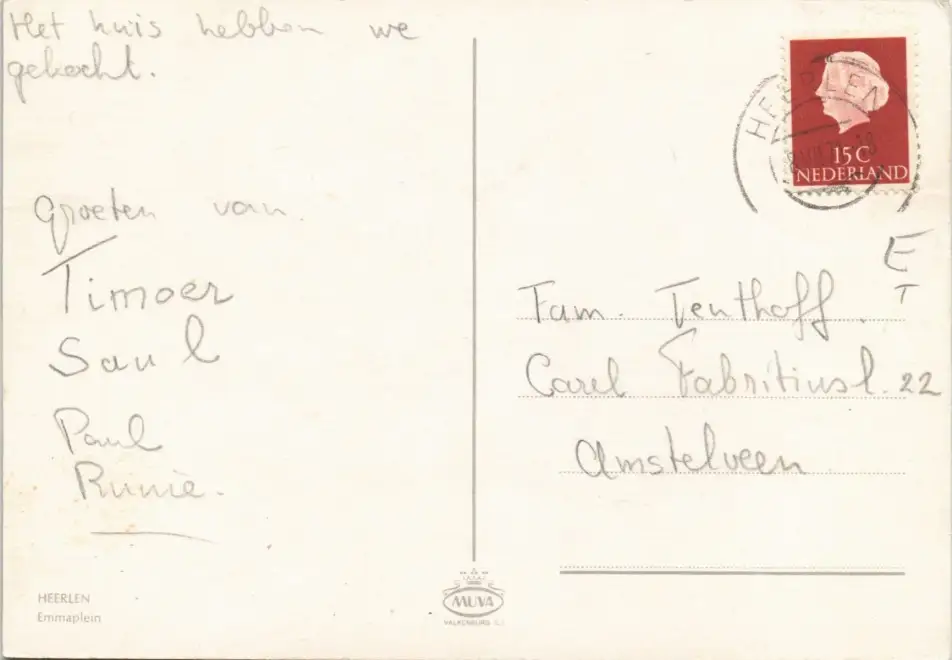 Het huis hebben we
gekocht.
Groeten van.
Timoer
Saul
Paul
Runie.
HEERLEN
Emmaplein
MUVA
VALKENBURG
HEERLEN
15 C
NEDERLAND
E
T
Fam. Tenthoff.
Carel Fabritiusl. 22
Amstelveen